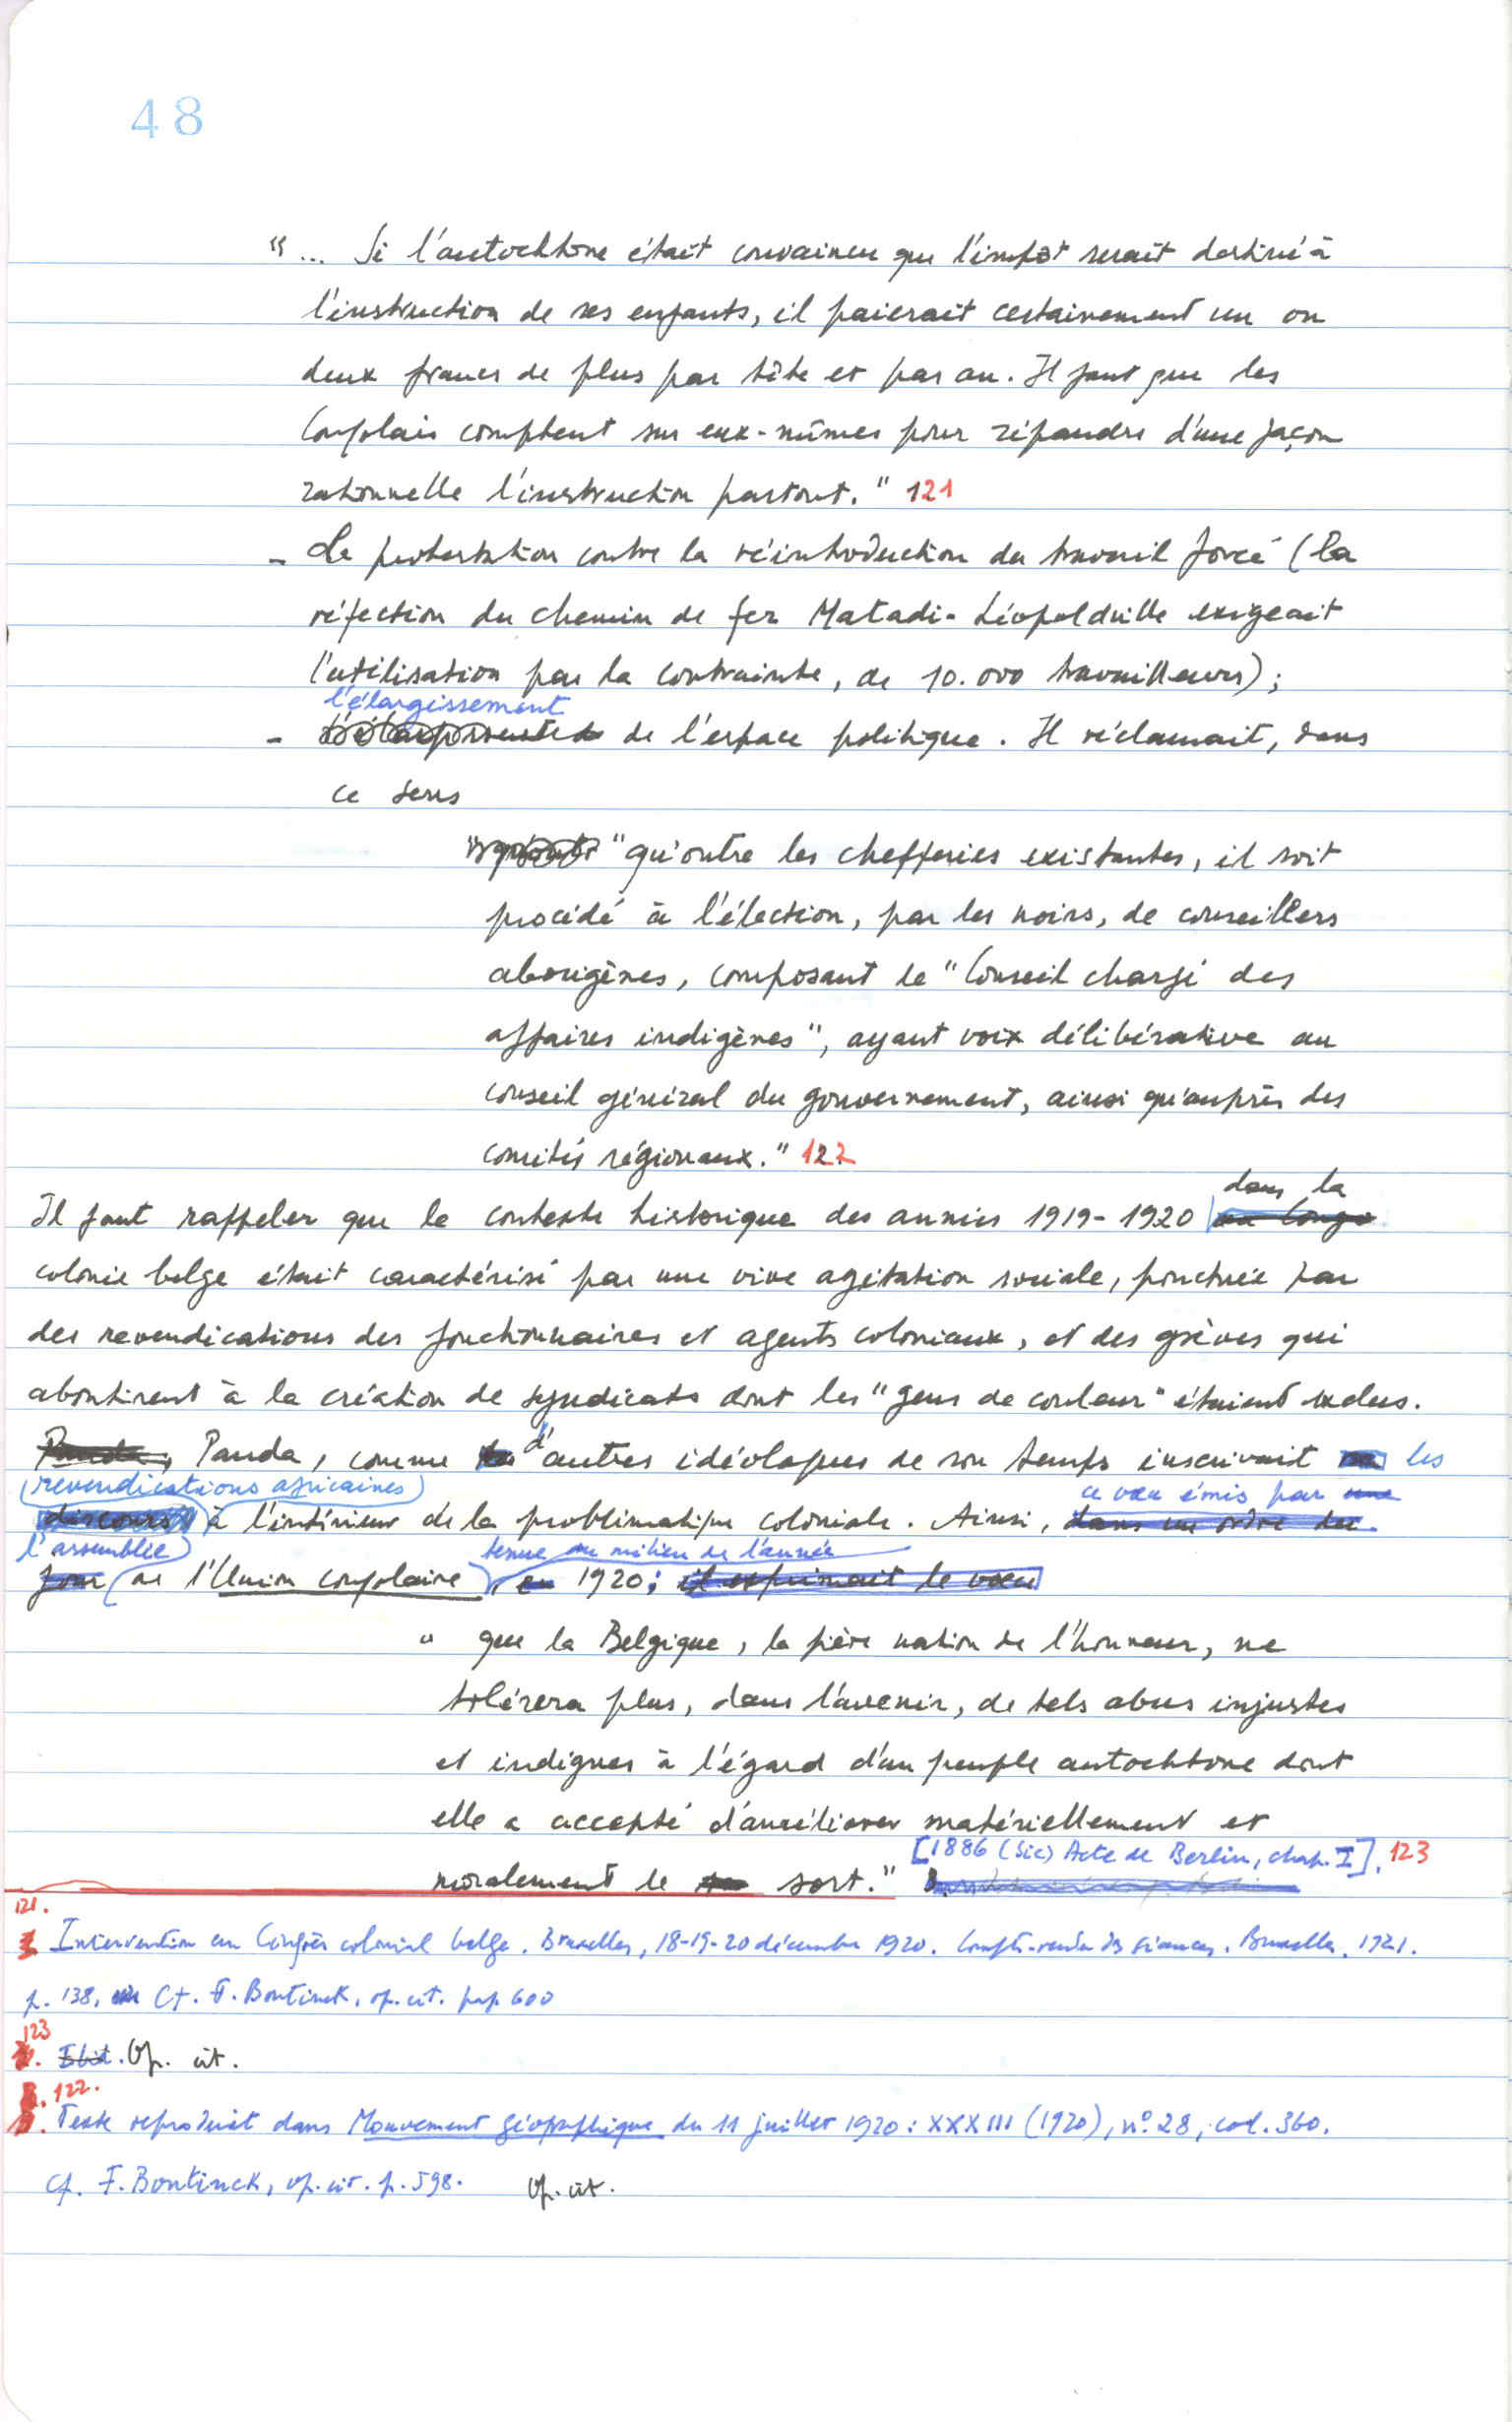 48
"... Si l'autochtone était convaincu que l'impôt serait destiné à
l'instruction de ses enfants, il paierait certainement un ou
deux francs de plus par tête et par an. Il faut que les
Congolais comptent sur eux-mêmes pour répandre d'une façon
rationnelle l'instruction partout." 121
- La protestation contre la réintroduction du travail forcé (la
réfection du chemin de fer Matadi-Léopoldville exigeait
l'utilisation par la contrainte, de 10.000 travailleurs);
l'élargissement
- de l'espace politique. Il réclamait, dans
ce sens
"qu'outre les chefferies existantes, il soit
procédé à l'élection, par les noirs, de conseillers
aborigènes, composant le "Conseil chargé des
affaires indigènes", ayant voix délibérative au
conseil général du gouvernement, ainsi qu'auprès des
comités régionaux." 122
dans la
Il faut rappeler que le contexte historique des années 1919-1920 au Congo
colonie belge était caractérisé par une vive agitation sociale, ponctuée par
des revendications des fonctionnaires et agents coloniaux, et des grèves qui
aboutirent à la création de syndicats dont les "gens de couleur" étaient exclus.
Panda, Panda, comme d'autres idéologues de son temps inscrivait les
revendications africaines ce vœu émis par une
discours à l'intérieur de la problématique coloniale. Ainsi, dans un ordre du
l'assemblée tenue au milieu de l'année
jour de l'Union congolaise, en 1920: il exprimait le vœu
" que la Belgique, la fière nation de l'honneur, ne
tolérera plus, dans l'avenir, de tels abus injustes
et indignes à l'égard d'un peuple autochtone dont
elle a accepté d'améliorer matériellement et
[1886 (sic) Acte de Berlin, chap. I]. 123
moralement le sort."
121.
1 Intervention au Congrès colonial belge. Bruxelles, 18-19-20 décembre 1920. Compte-rendu des séances. Bruxelles, 1921.
p. 138, Cf. F. Bontinck, op. cit. pap 600
123
Ibid. Op. cit.
122.
Texte reproduit dans Mouvement géographique du 11 juillet 1920: XXXIII (1920), n° 28, col. 360.
Cf. F. Bontinck, op. cit. p. 598. Op. cit.